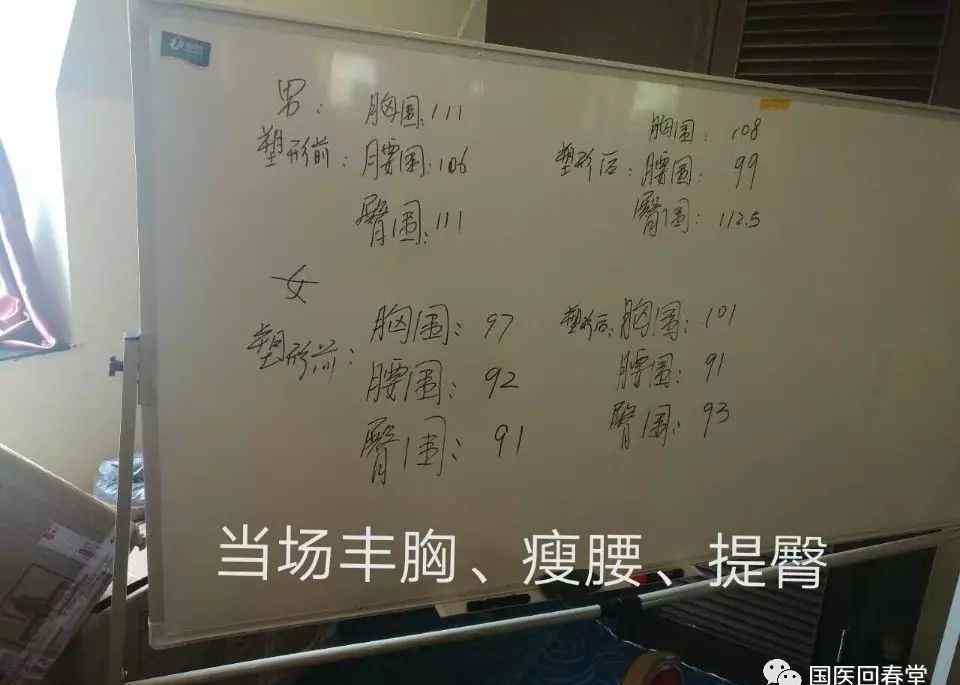 男：
胸围：111
塑形前：腰围：106
臀围：111
胸围：108
塑形后：腰围：99
臀围：112.5
女
塑形前：胸围：97
腰围：92
臀围：91
塑形后：胸围：101
腰围：91
臀围：93
当场丰胸、瘦腰、提臀
国医回春堂